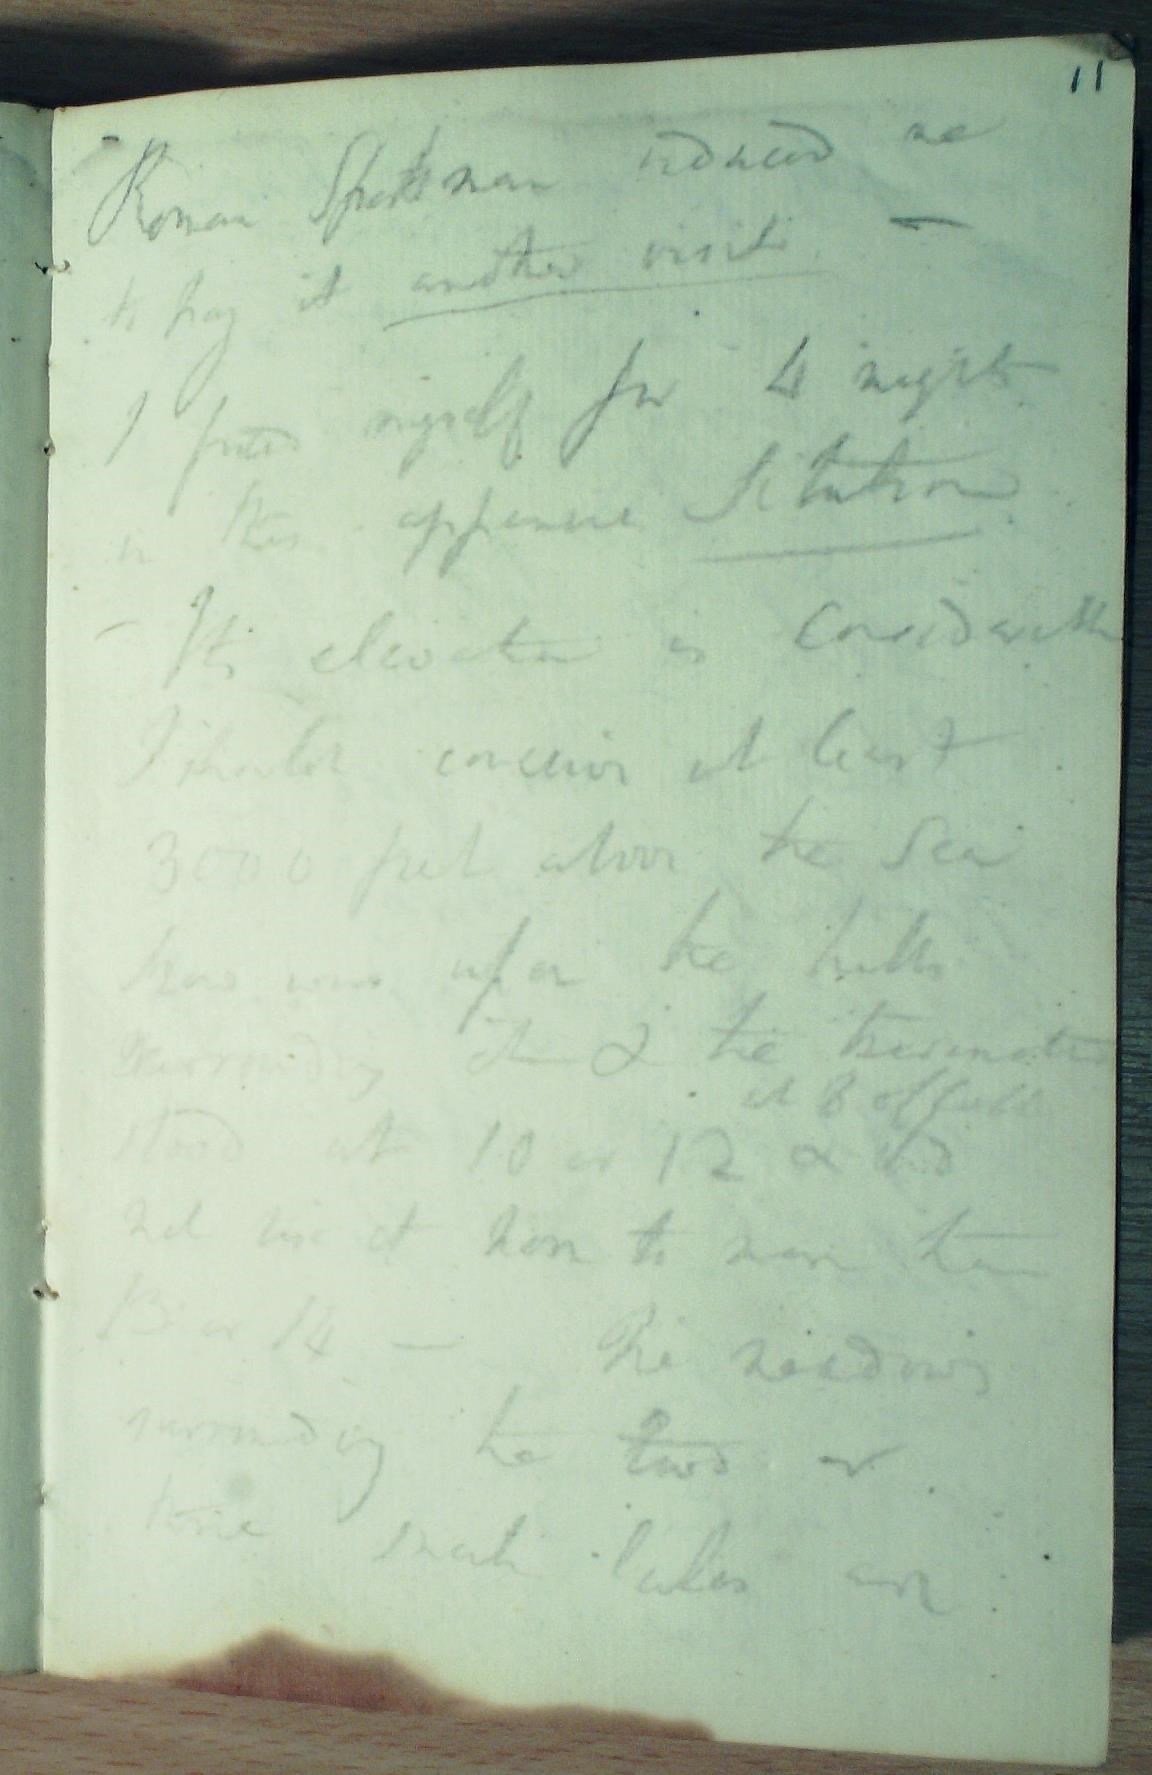 11
Roman Sportsman induced me
to pay it another visit. —
I fixed myself for 4 nights
in this Situation
— Its elevation is considerable
I should conceive at least
3000 feet above the Sea
Snow was upon the hills
surrounding it & the thermometer
at 8 of
stood at 10 or 12 & did
not rise at noon to more than
13 or 14 — The meadows
surrounding the two or
three small lakes are